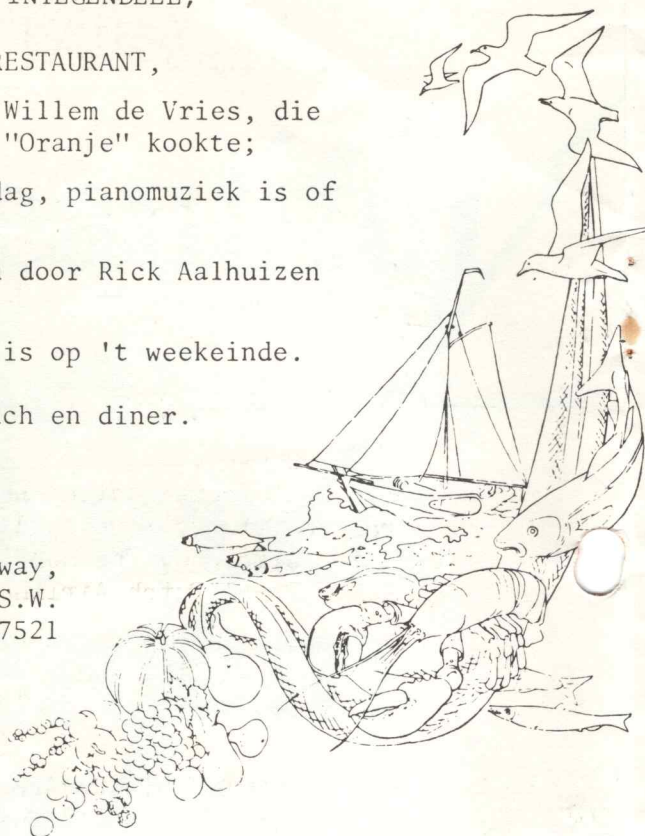 INTEGENDEEL,
RESTAURANT,
Willem de Vries, die
"Oranje" kookte;
dag, pianomuziek is of
door Rick Aalhuizen
is op 't weekeinde.
ch en diner.
way,
S.W.
7521